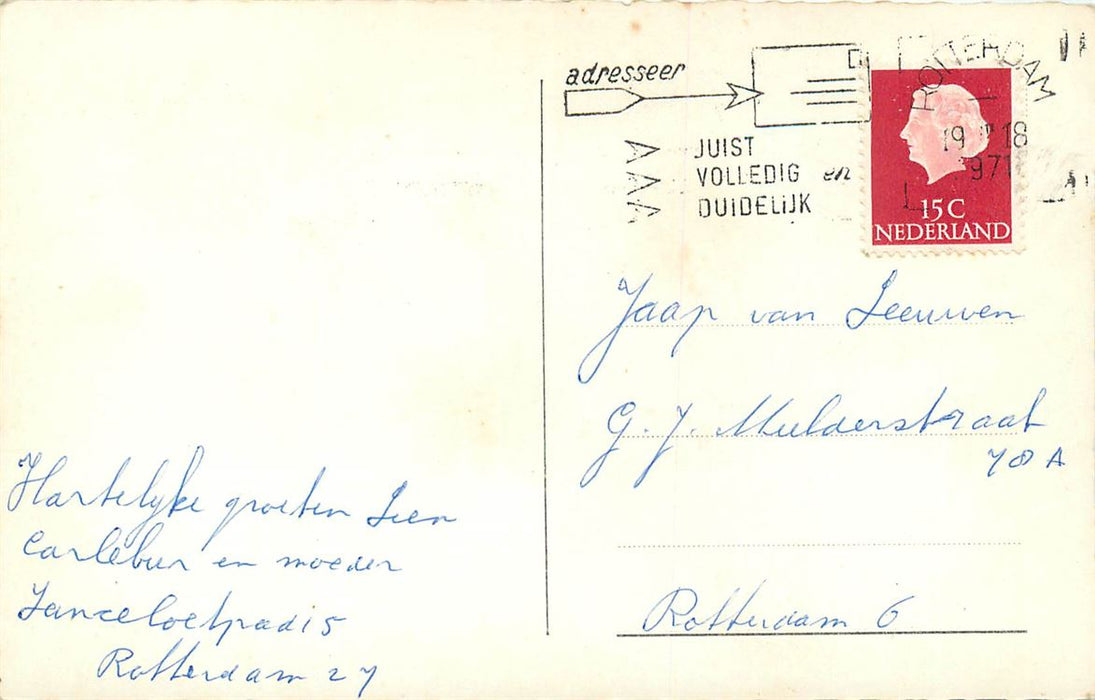 adresseer
JUIST
VOLLEDIG en
DUIDELIJK
ROTTERDAM
19 18
971
15 C
NEDERLAND
Jaap van Leeuwen
G. J. Mulderstraat
78 A
Rotterdam 6
Hartelyke groeten Leen
Carlebur en moeder
Lanceloetpad 15
Rotterdam 27